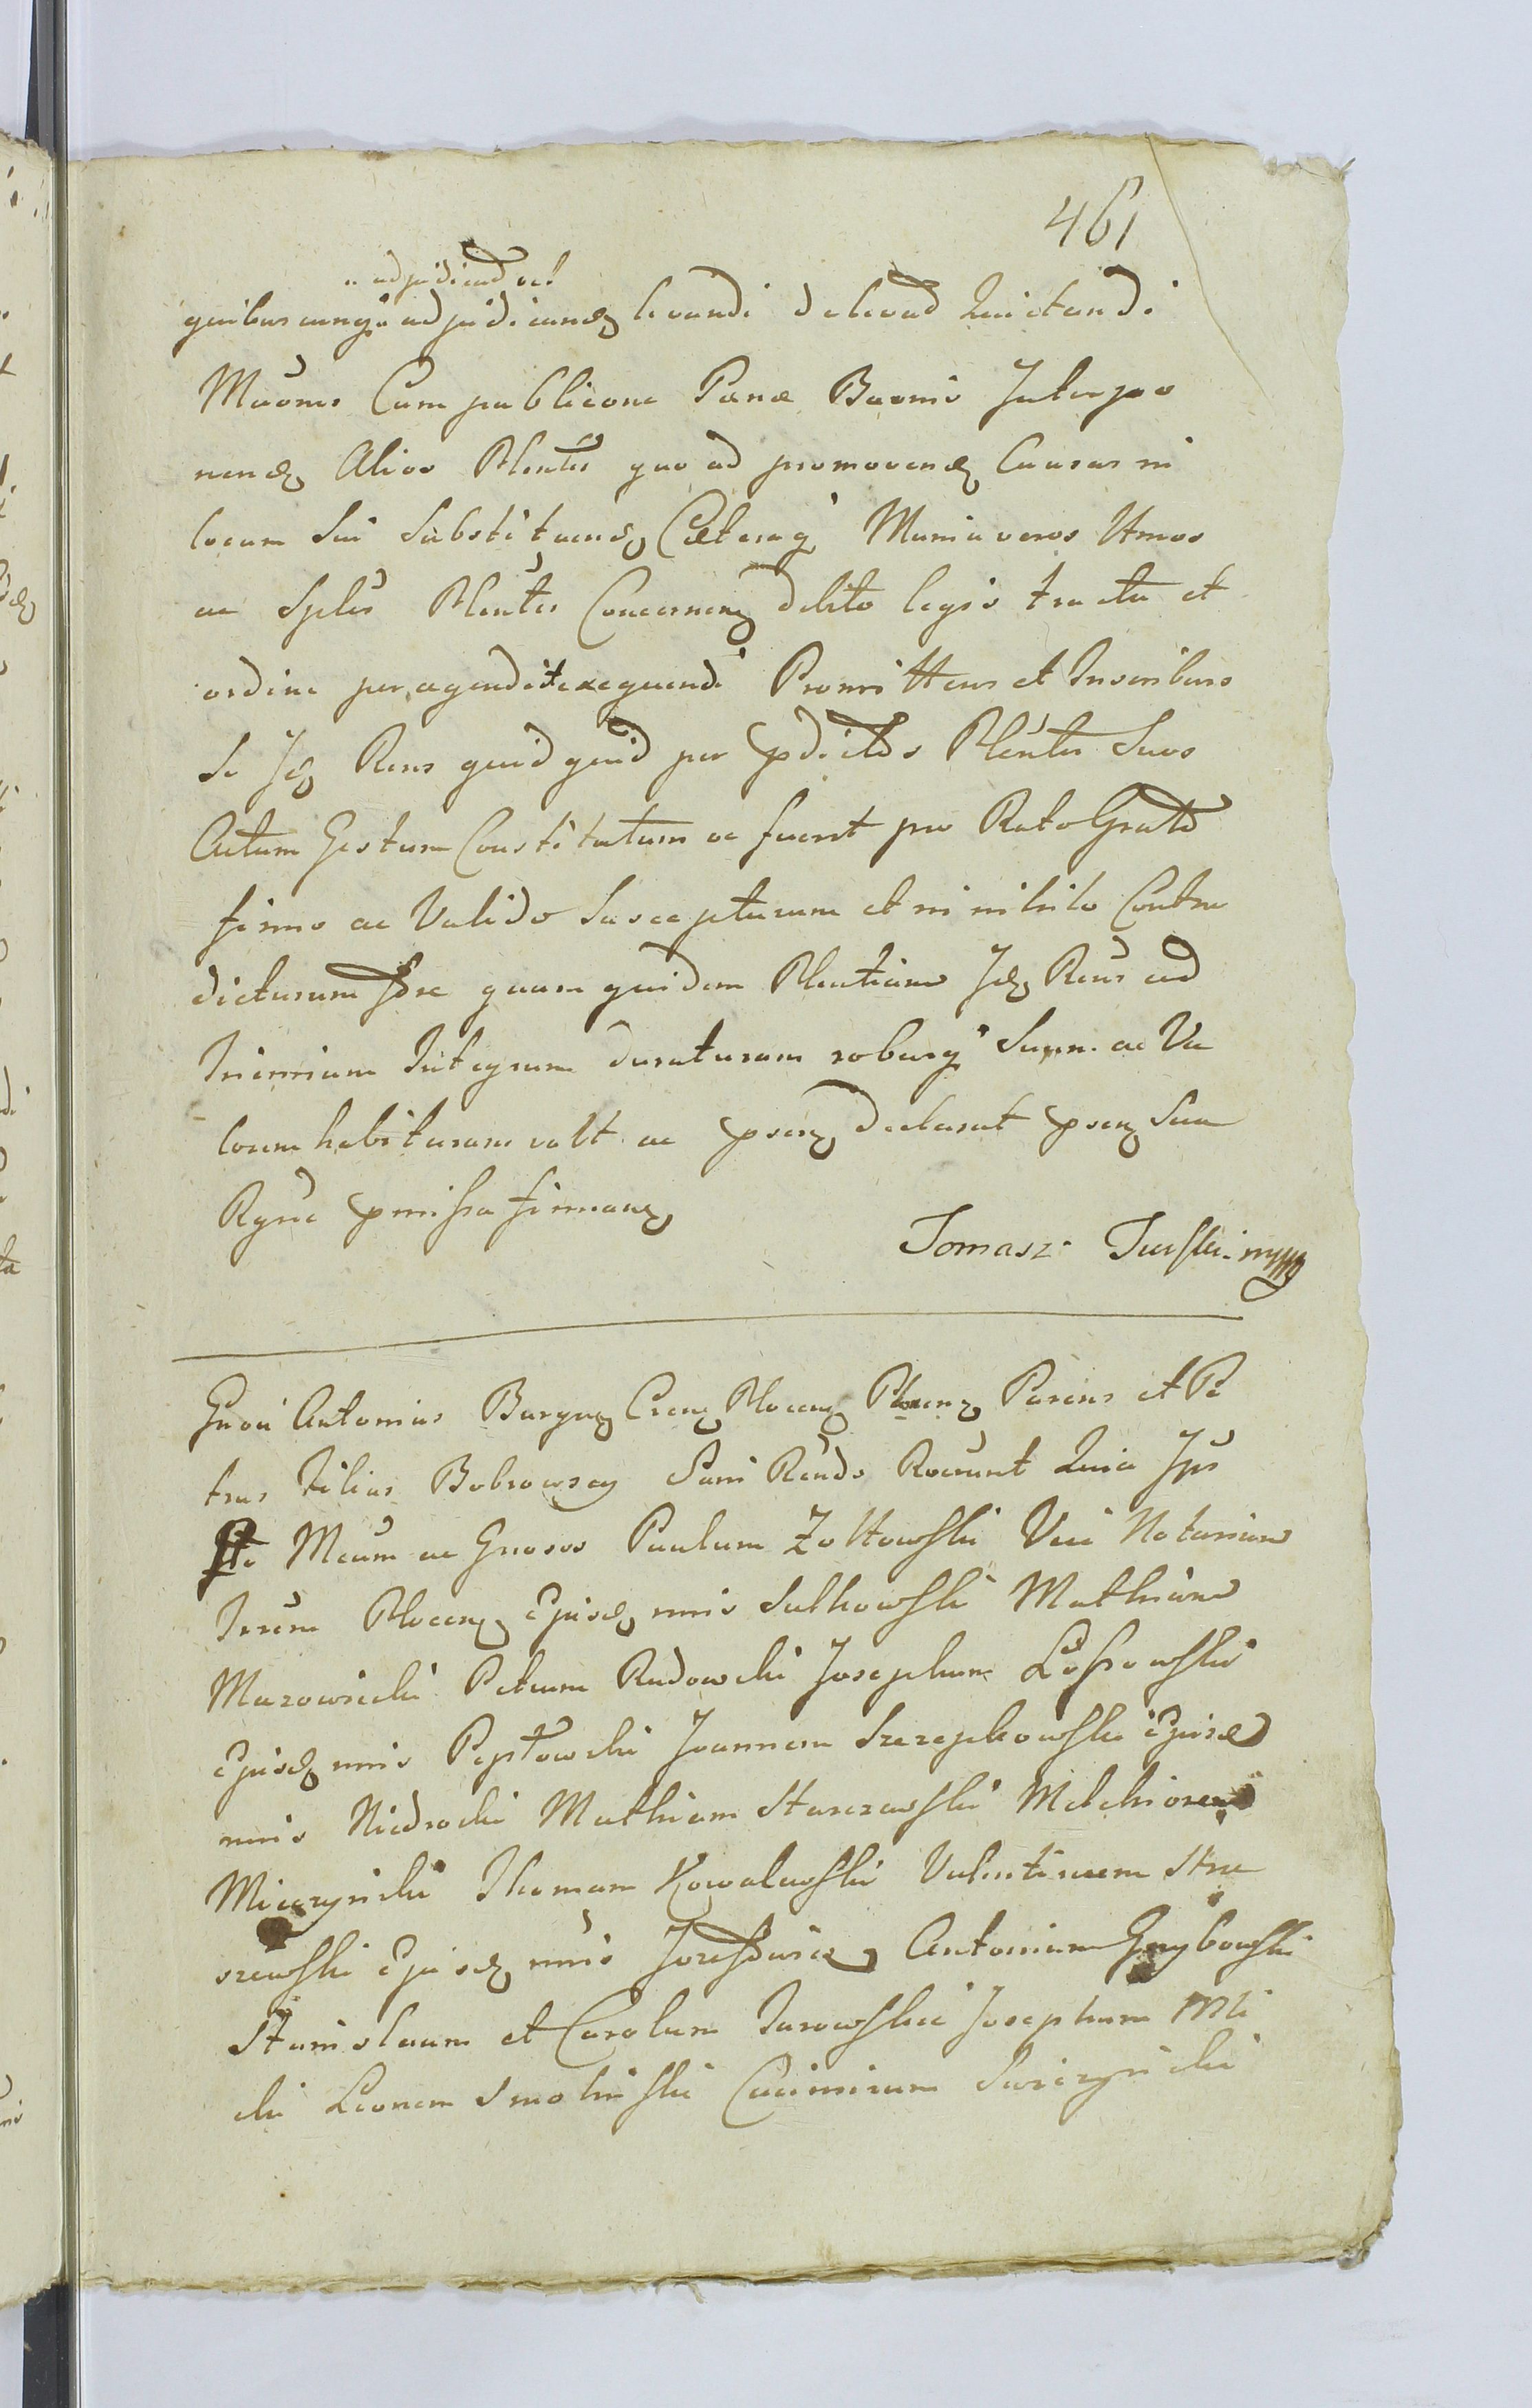 461
adjudicand ac
quibuscunq adjudicand levandi delevand Quictandi
Muoner Cum publicone Pœnæ Buonis Interpo
nend Alios Plentes quo ad promovend Causas in
locum sui substituend Cœteraq Munia veros Utmos
ac Splis Plentes Concernen debito legis tractu et
ordine peragendi et exequendi Promittens et Inscribens
Se Id Rens quidquid per pdictos Plentes Suos
Actum Gestum Constitutum ac fuerit pro Rato Grato
firmo ac Valido Suscepturum et in nihilo Contra
dicturum fore quam quidem Plentiam Id Rens ad
Triennium Integrum duraturam roburq Suum ac Va
lorem habituram vult ac psen declarat psen Sua
Rgne pmissa firman
Tomasz Turski mpp
Gnosi Antonius Burgra Cren Plocen Plocen Parens et Pe
trus Filius Bobrowscy Sani Rendo Rocrunt Quia Ips
Pto Mcum ac Gnosos Paulum Zołtowski Vice Notarium
Trrem Plocen Ejusd nnis Sulkowski Mathiam
Mazowiecki Petrum Radowcki Josephum Lossowski
Ejusd nnis Pepłowski Joannem Szczepkowski Ejusd
nnis Niedrocki Mathiam Starczewski Melchiorem
Mierzynski Thomam Kowalewski Valentinum Stra
szewski Ejusd nnis Antonium Grzybowski
Stanislaum et Carolum Turowskie Josephum Mli
cki Leonem Smolinski Casimirum Swierzynski